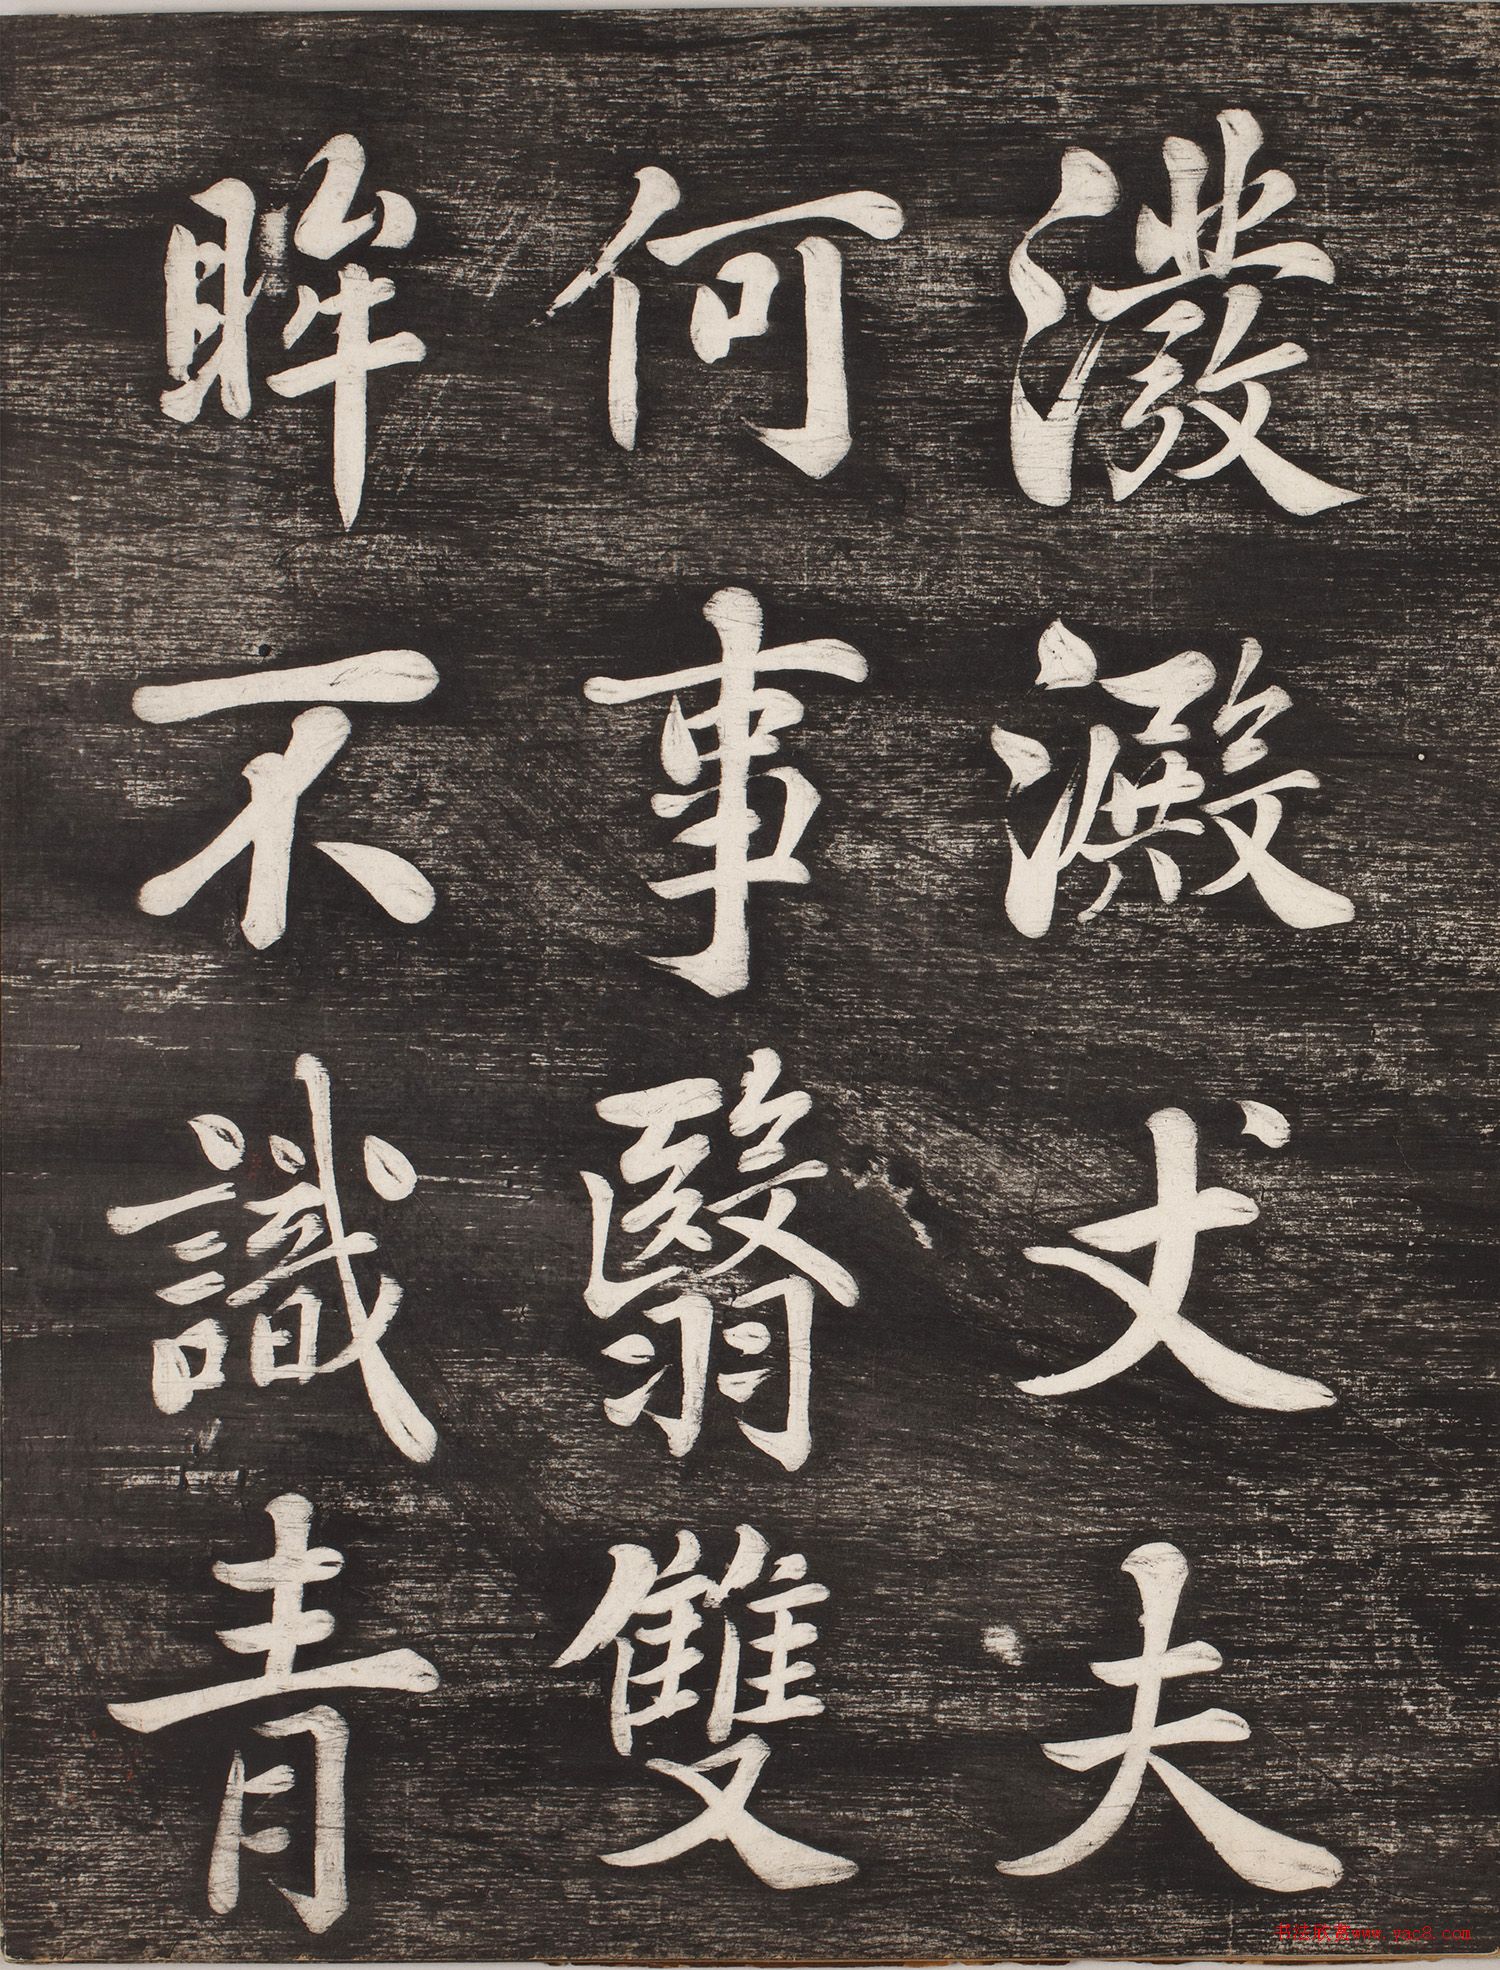 潑澱丈夫
何事翳雙
眸不識青
书法欣赏www.yac8.com